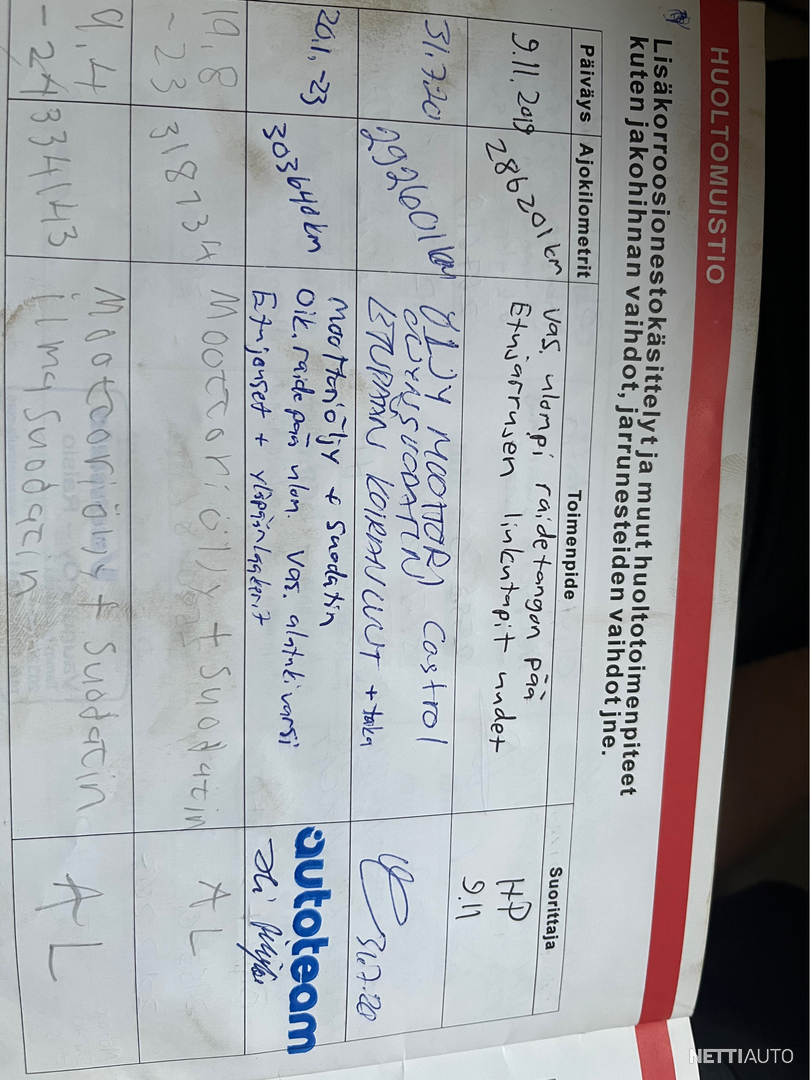 HUOLTOMUISTIO
Lisäkorroosionestokäsittelyt ja muut huoltotoimenpiteet
kuten jakohihnan vaihdot, jarrunesteiden vaihdot jne.
Päiväys Ajokilometrit Toimenpide Suorittaja
9.11.2019 286201km vas. ulompi raidetangon pää
Etujarrujen liukutapit uudet
HP
9.11
31.7.20 292601km ÖLJY MOOTTORI Castrol
ÖLJYNSUODATIN
ETUPÄÄN KOIRANLUUT + taka
31.7.20
20.1.-23 303640km Moottoriöljy + Suodatin
Oik. raidepää ulom. vas. alatukivarsi
Etujouset + yläpäänlaakerit
autoteam
19.8
-23 318734 Moottoriöljy + Suodatin AL
9.4
-24 334143 Moottoriöljy + Suodatin
ilmaSuodatin
AL
NETTIAUTO